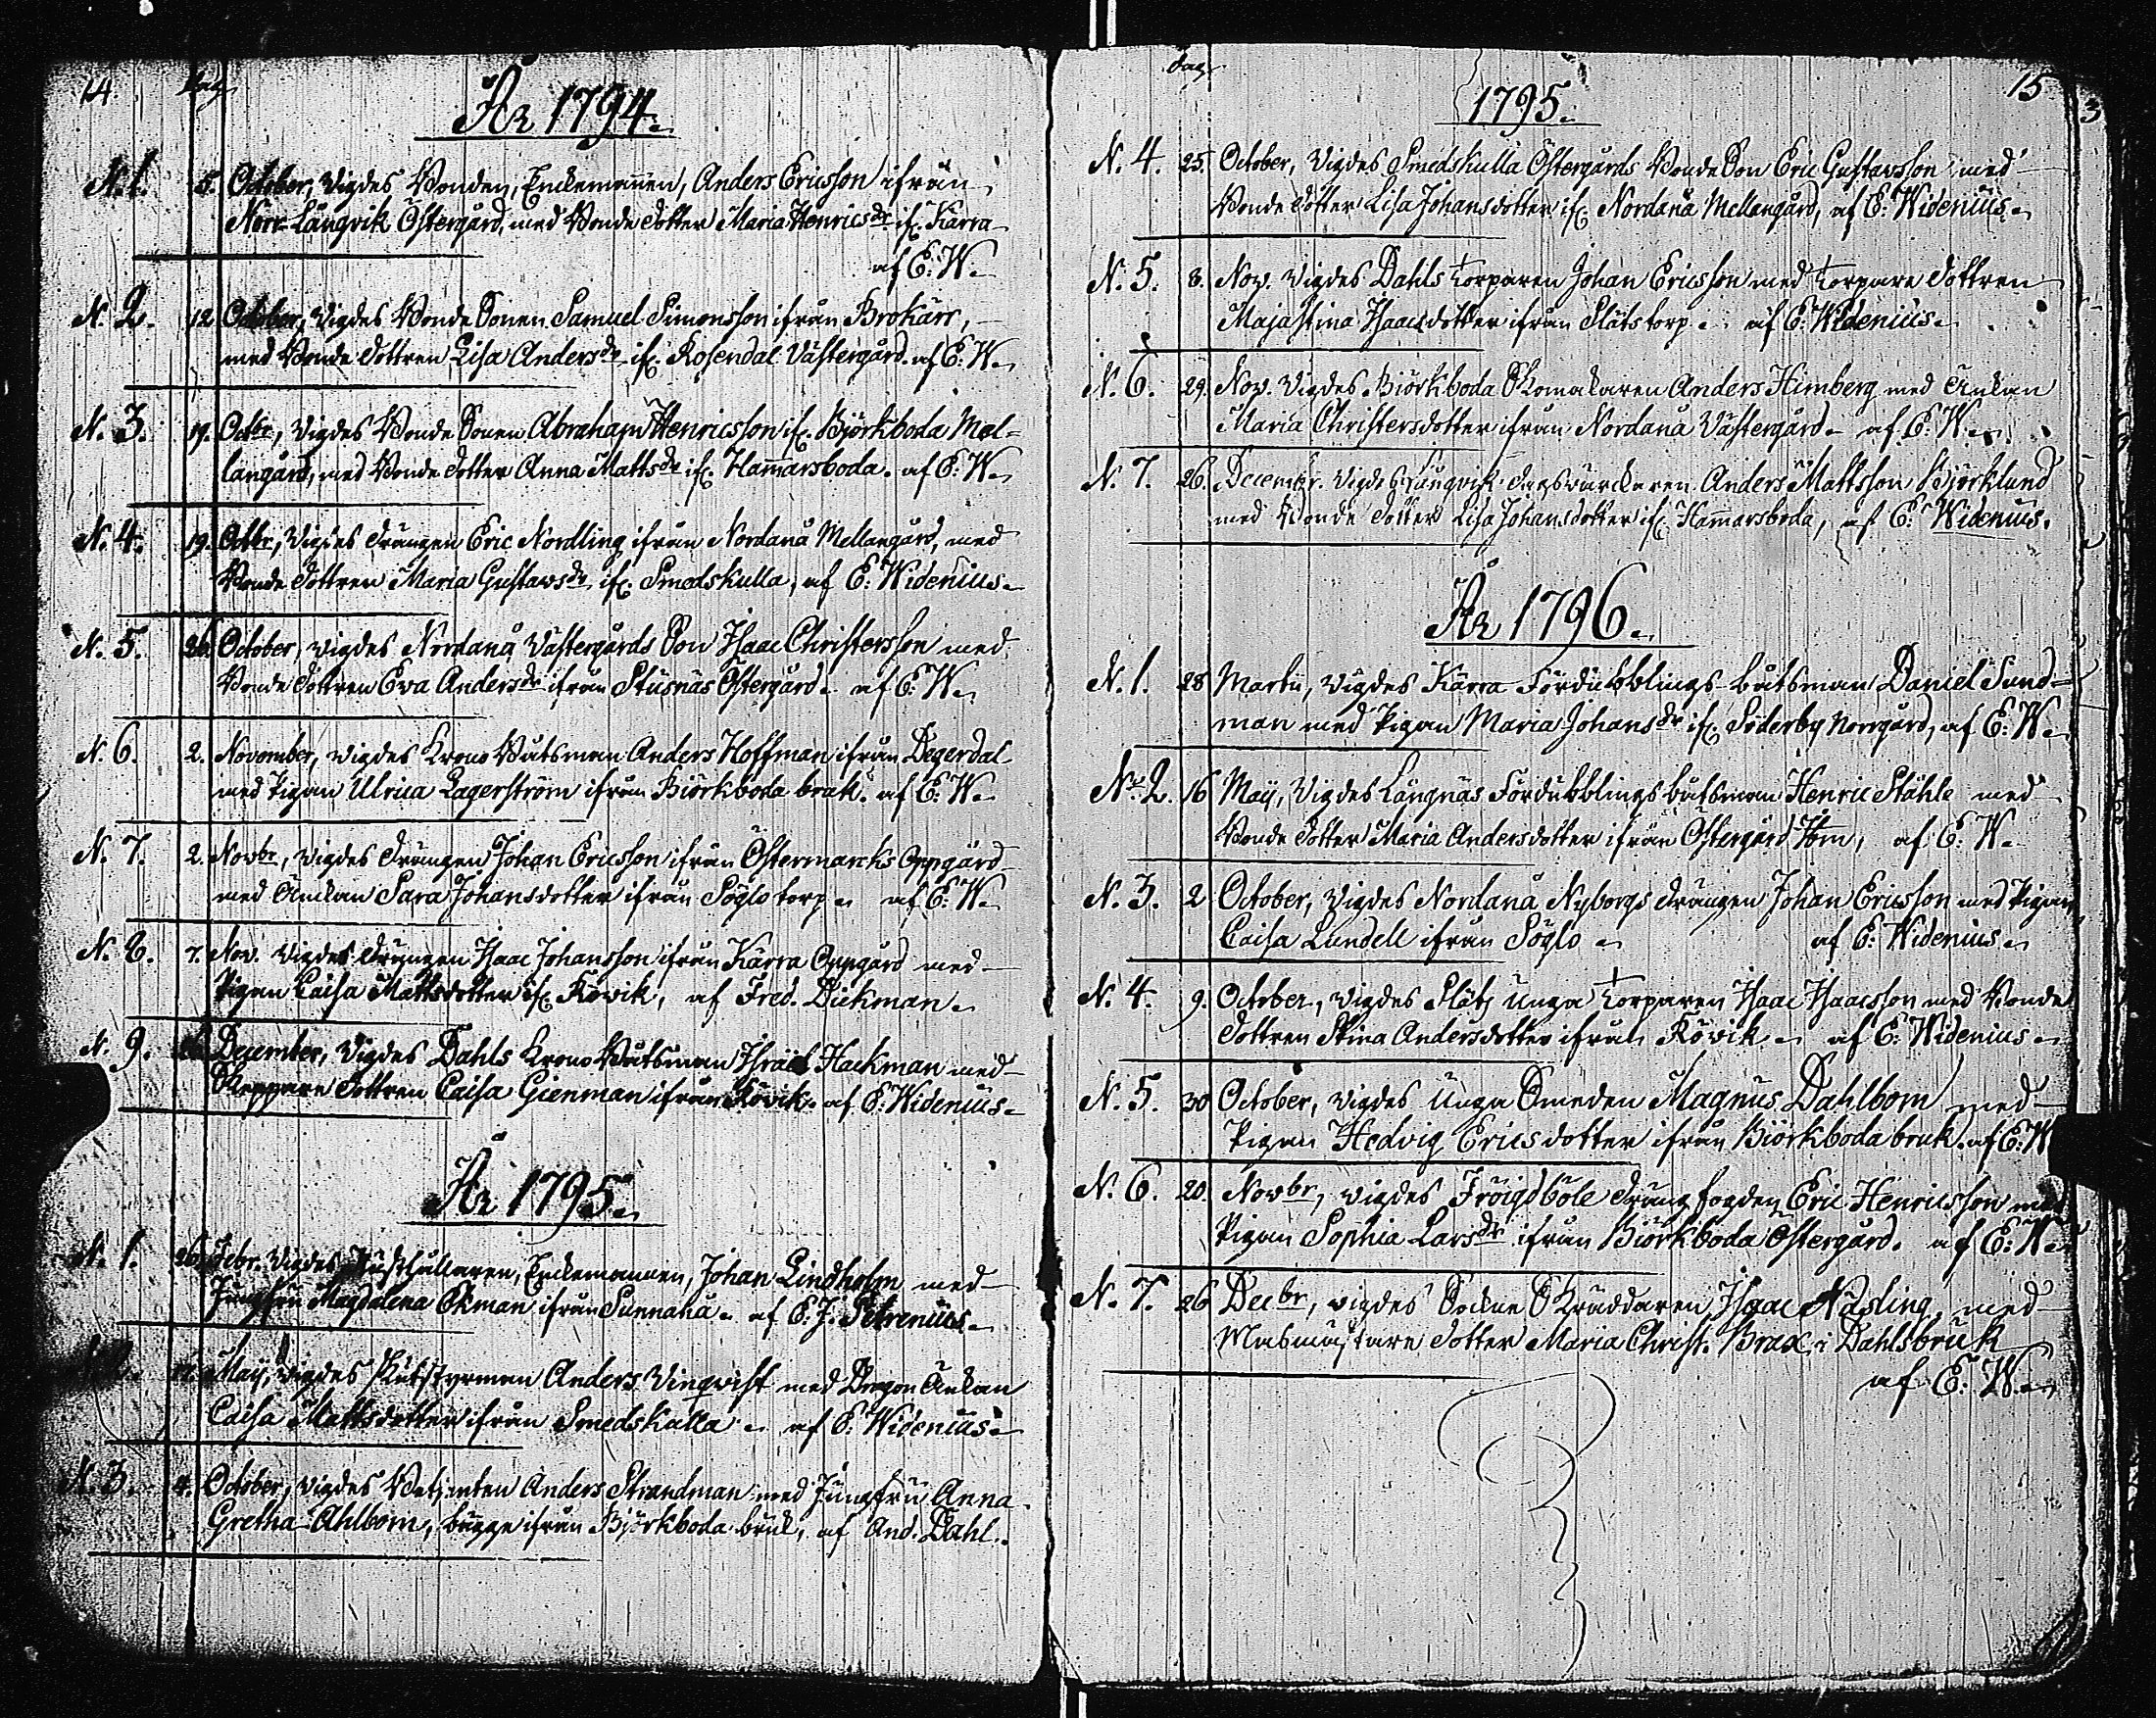 14. dag
År 1794.
N. 1. 5. October, Vigdes Bonden, Enckemannen, Anders Ericsson ifrån
Norr-Långvik Östergård, med Bonde dotter Maria Henricsdr if. Kärra
af E: W.
N. 2. 12 October, Vigdes Bonde Sonen Samuel Simonsson ifrån Brokärr,
med Bonde dottren Lisa Andersdr if. Rosendal Västergård. af E: W.
N. 3. 19. Octbr, Vigdes Bonde Sonen Abraham Henricsson if. Björkboda Mel=
langård, med Bonde dotter Anna Mattsdr if. Hammarsboda. af E: W.
N. 4. 19. Octbr, Vigdes drängen Eric Nordling ifrån Nordanå Mellangård, med
Bonde dottren Maria Gustavsdr if. Smedskulla, af E: Widenius.
N. 5. 26. October, vigdes Nordanå Västergårds Son Isaac Christersson med
Bonde dottren Eva Andersdr ifrån Stusnäs Östergård. af E: W.
N. 6. 2. November, vigdes Krono Båtsman Anders Hoffman ifrån Degerdal
med Pigan Ulrica Lagerström ifrån Biörkboda bruk. af E: W.
N. 7. 2. Novbr, vigdes drängen Johan Ericsson ifrån Östermarcks Oppgård
med Änckan Sara Johansdotter ifrån Söglo torp. af E: W.
N. 8. 7. Nov. Vigdes drängen Isaac Johansson ifrån Kärra Oppgård med
Pigan Caisa Mattsdotter if. Rövik, af Fred. Dickman.
N. 9. December, Vigdes Dahls Krono Båtsman Israel Hackman med
Skeppare dottren Caisa Gienman ifrån Rövik. af E: Widenius.
År 1795.
N. 1. 26. Febr. Vigdes Enckemannen, Johan Lindholm med
Jungfrun Magdalena Ekman ifrån Sunnanå. af E. J. Petrenius.
May, Vigdes Anders Vinqvist med Dragon Änckan
Caisa Mattsdotter ifrån Smedskulla. af E: Widenius.
N. 3. 4. October, vigdes Betjenten Anders Strandman med Jungfru Anna
Gretha Ahlbom, begge ifrån Björkboda bruk, af And. Dahl.
dag 15
1795.
N. 4. 25. October, Vigdes Smedskulla Östergårds Bonde Son Eric Gustavsson med
Bonde dotter Lisa Johansdotter if. Nordanå Mellangård, af E: Widenius.
N. 5. 8. Nov. vigdes Dahls Torparen Johan Ericsson med Torpare dottren
Majastina Isaacsdotter ifrån Släts torp. af E: Widenius.
N. 6. 29. Nov. Vigdes Biörkboda Skomakaren Anders Himberg med Änkan
Maria Christersdotter ifrån Nordanå Västergård. af E: W.
N. 7. 26. Decembr. Vigdes Långvik dagsvärckaren Anders Mattsson Björklund
med Bonde dotter Lisa Johansdotter if. Hammarsboda, af E: Widenius.
År 1796.
N. 1. 28 Martii, Vigdes Kärra Fördubblings-båtsman Daniel Sund=
man med Pigan Maria Johansdr if. Söderby Norrgård, af E: W.
No 2. 16 Maij, Vigdes Långnäs Fördubblings båtsman Henric Ståhle med
Bonde dotter Maria Andersdotter ifrån Östergård Hom, af E: W.
N. 3. 2 October, Vigdes Nordanå Nyborgs drängen Johan Ericsson med Pigan
Caisa Lundell ifrån Söglo af E: Widenius.
N. 4. 9. October, Vigdes Släts Unga Torparen Isaac Isaacsson med Bonde
dottren Stina Andersdotter ifrån Rövik. af E: Widenius.
N. 5. 30 October, vigdes Unga Smeden Magnus Dahlbom med
Pigan Hedvig Ericsdotter ifrån Biörkboda bruk. af E: W
N. 6. 20. Novbr, vigdes Fröigdböle drängfogden Eric Henricsson med
Pigan Sophia Larsdr ifrån Biörkboda Östergård. af E: W.
N. 7. 26 Decbr, vigdes Sockne Skräddaren Isaac Näsling, med
Masmästare dotter Maria Christ. Brax, i Dahlsbruk
af E: W.